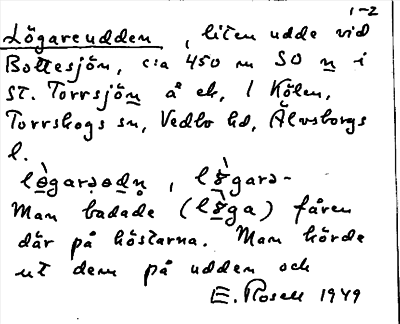 1-2
Lögareudden, liten udde vid
Bottesjön, c:a 450 m SO n i
St. Torrsjön å ek, 1 Kölen,
Torrskogs sn, Vedbo hd, Älvsborgs
l.
Man badade (          ) fåren
där på höstarna. Man körde
ut dem på udden och
E. Rosell 1949